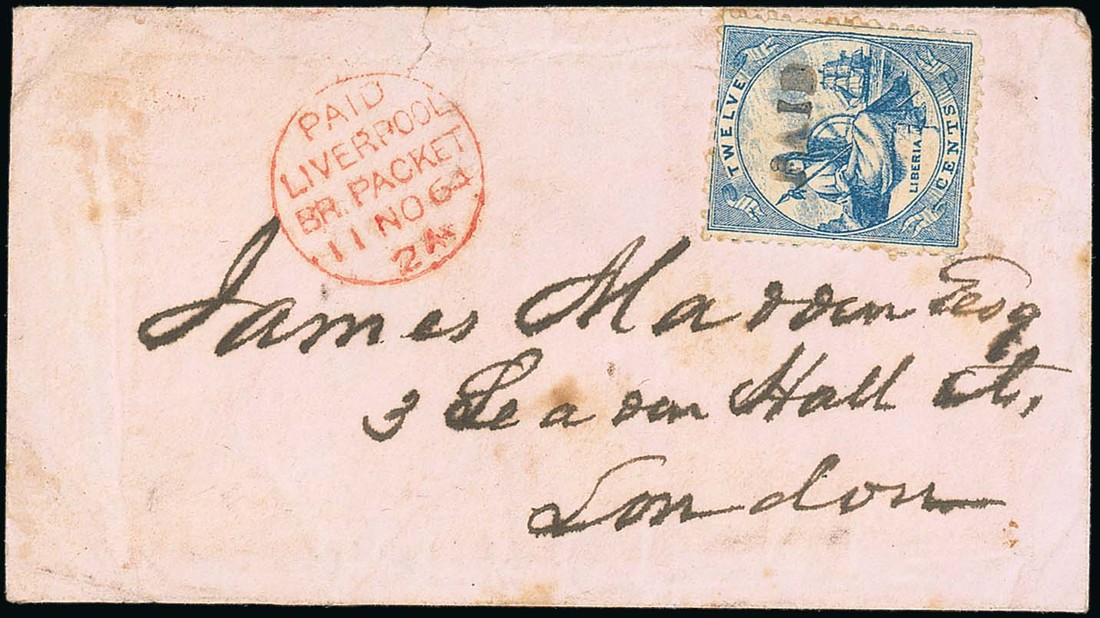 PAID
LIVERPOOL
BR. PACKET
11 NO 64
2A
TWELVE
CENTS
LIBERIA
PAID
James Madden Esq
3 Leaden Hall St,
London